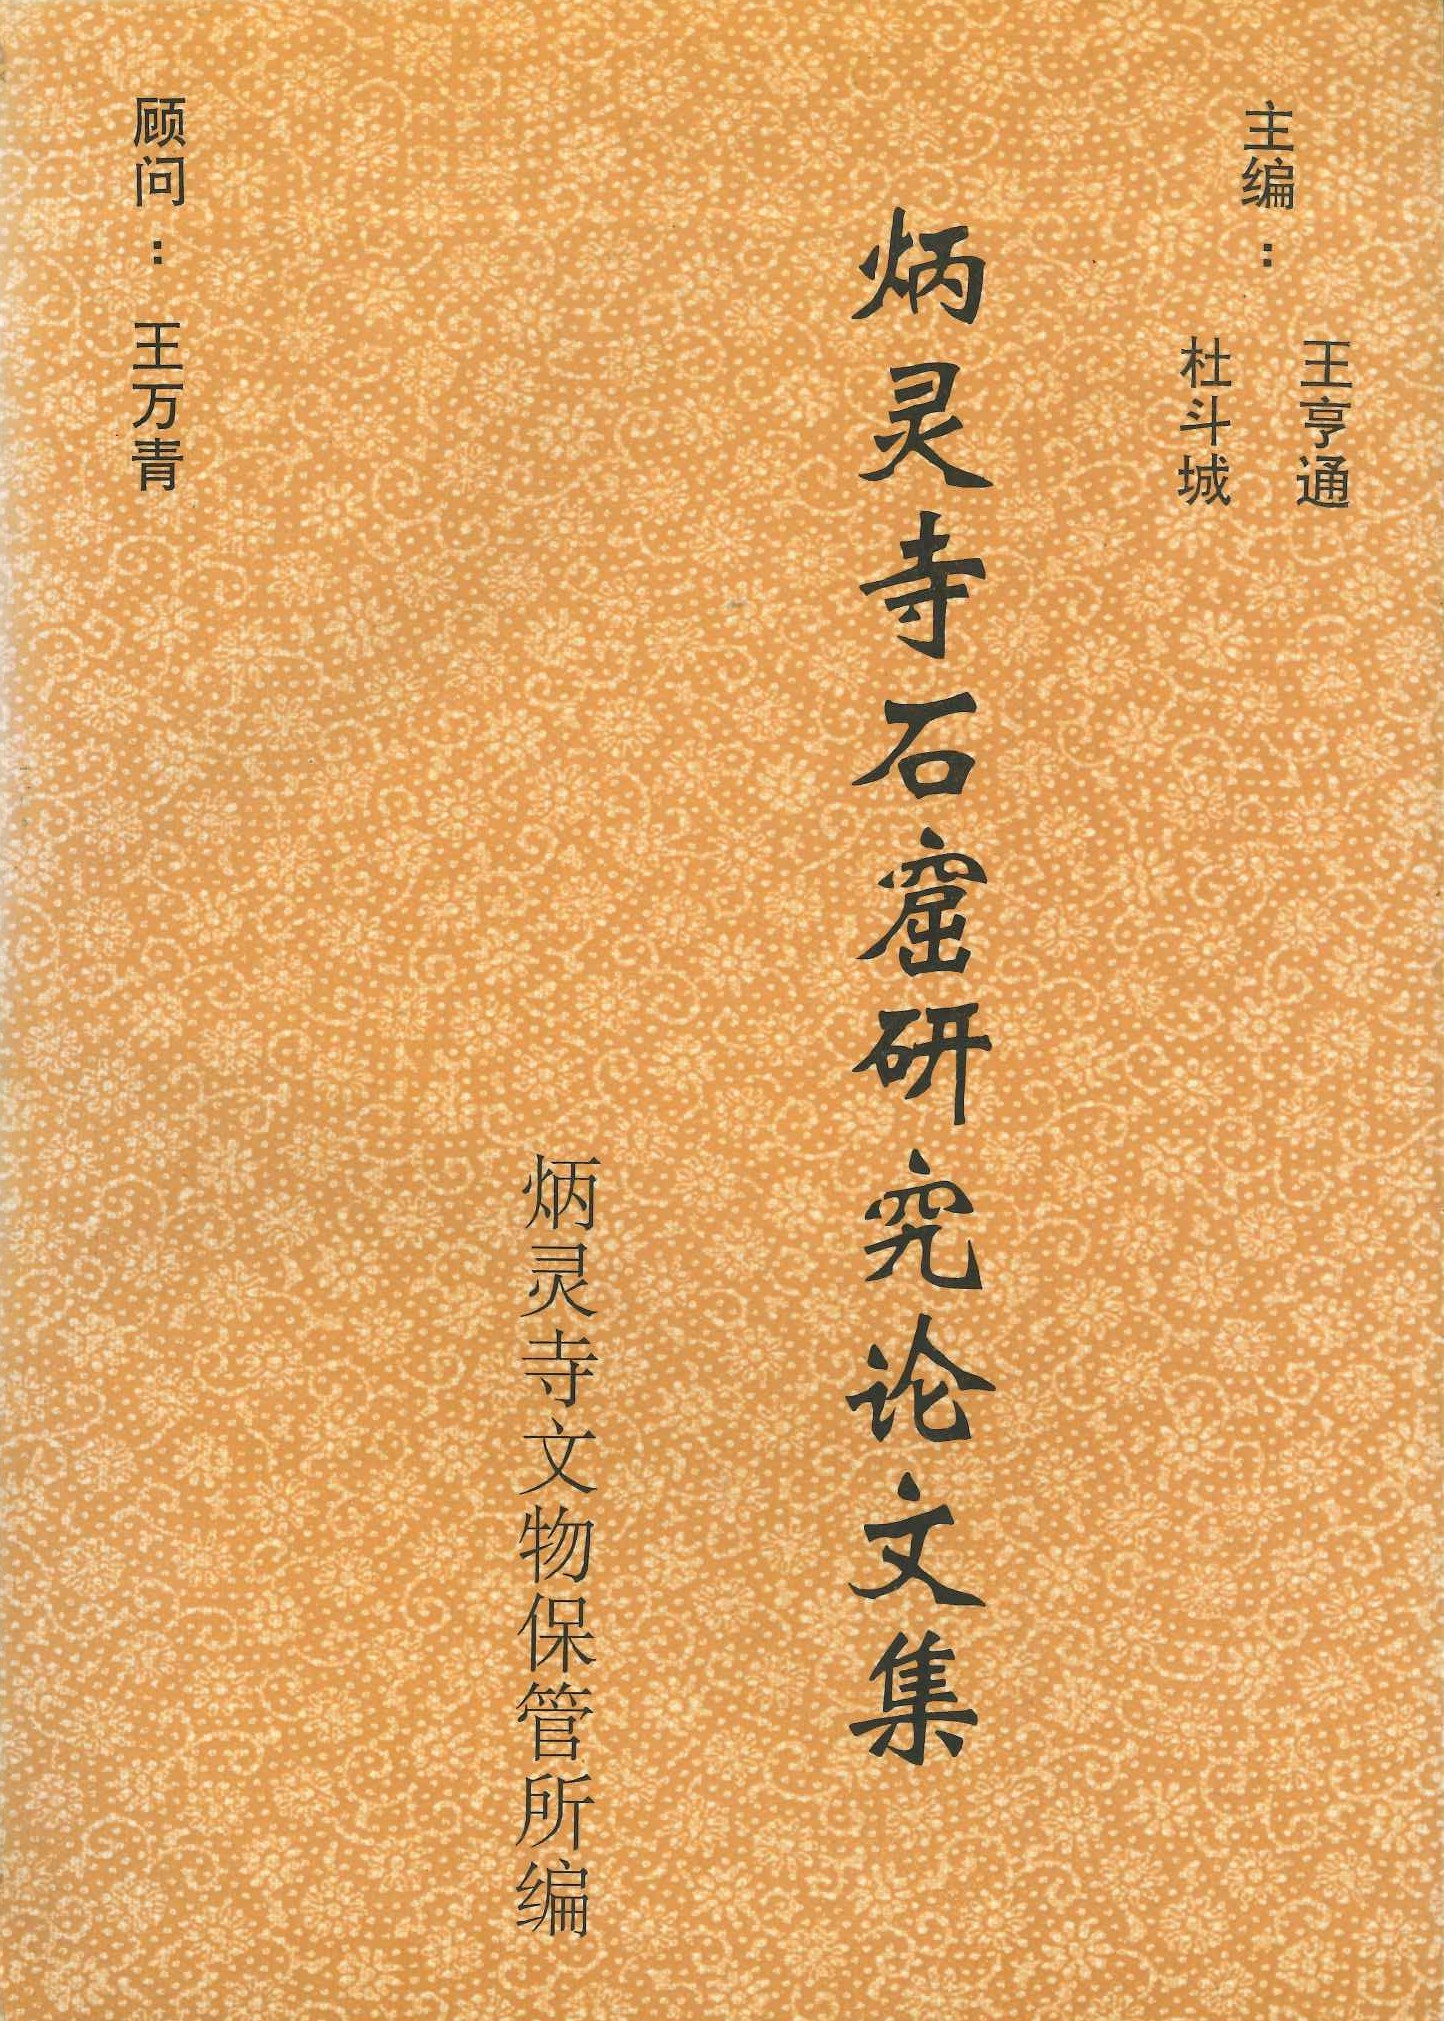 主编：
王亨通
杜斗城
炳灵寺石窟研究论文集
炳灵寺文物保管所编
顾问：王万青